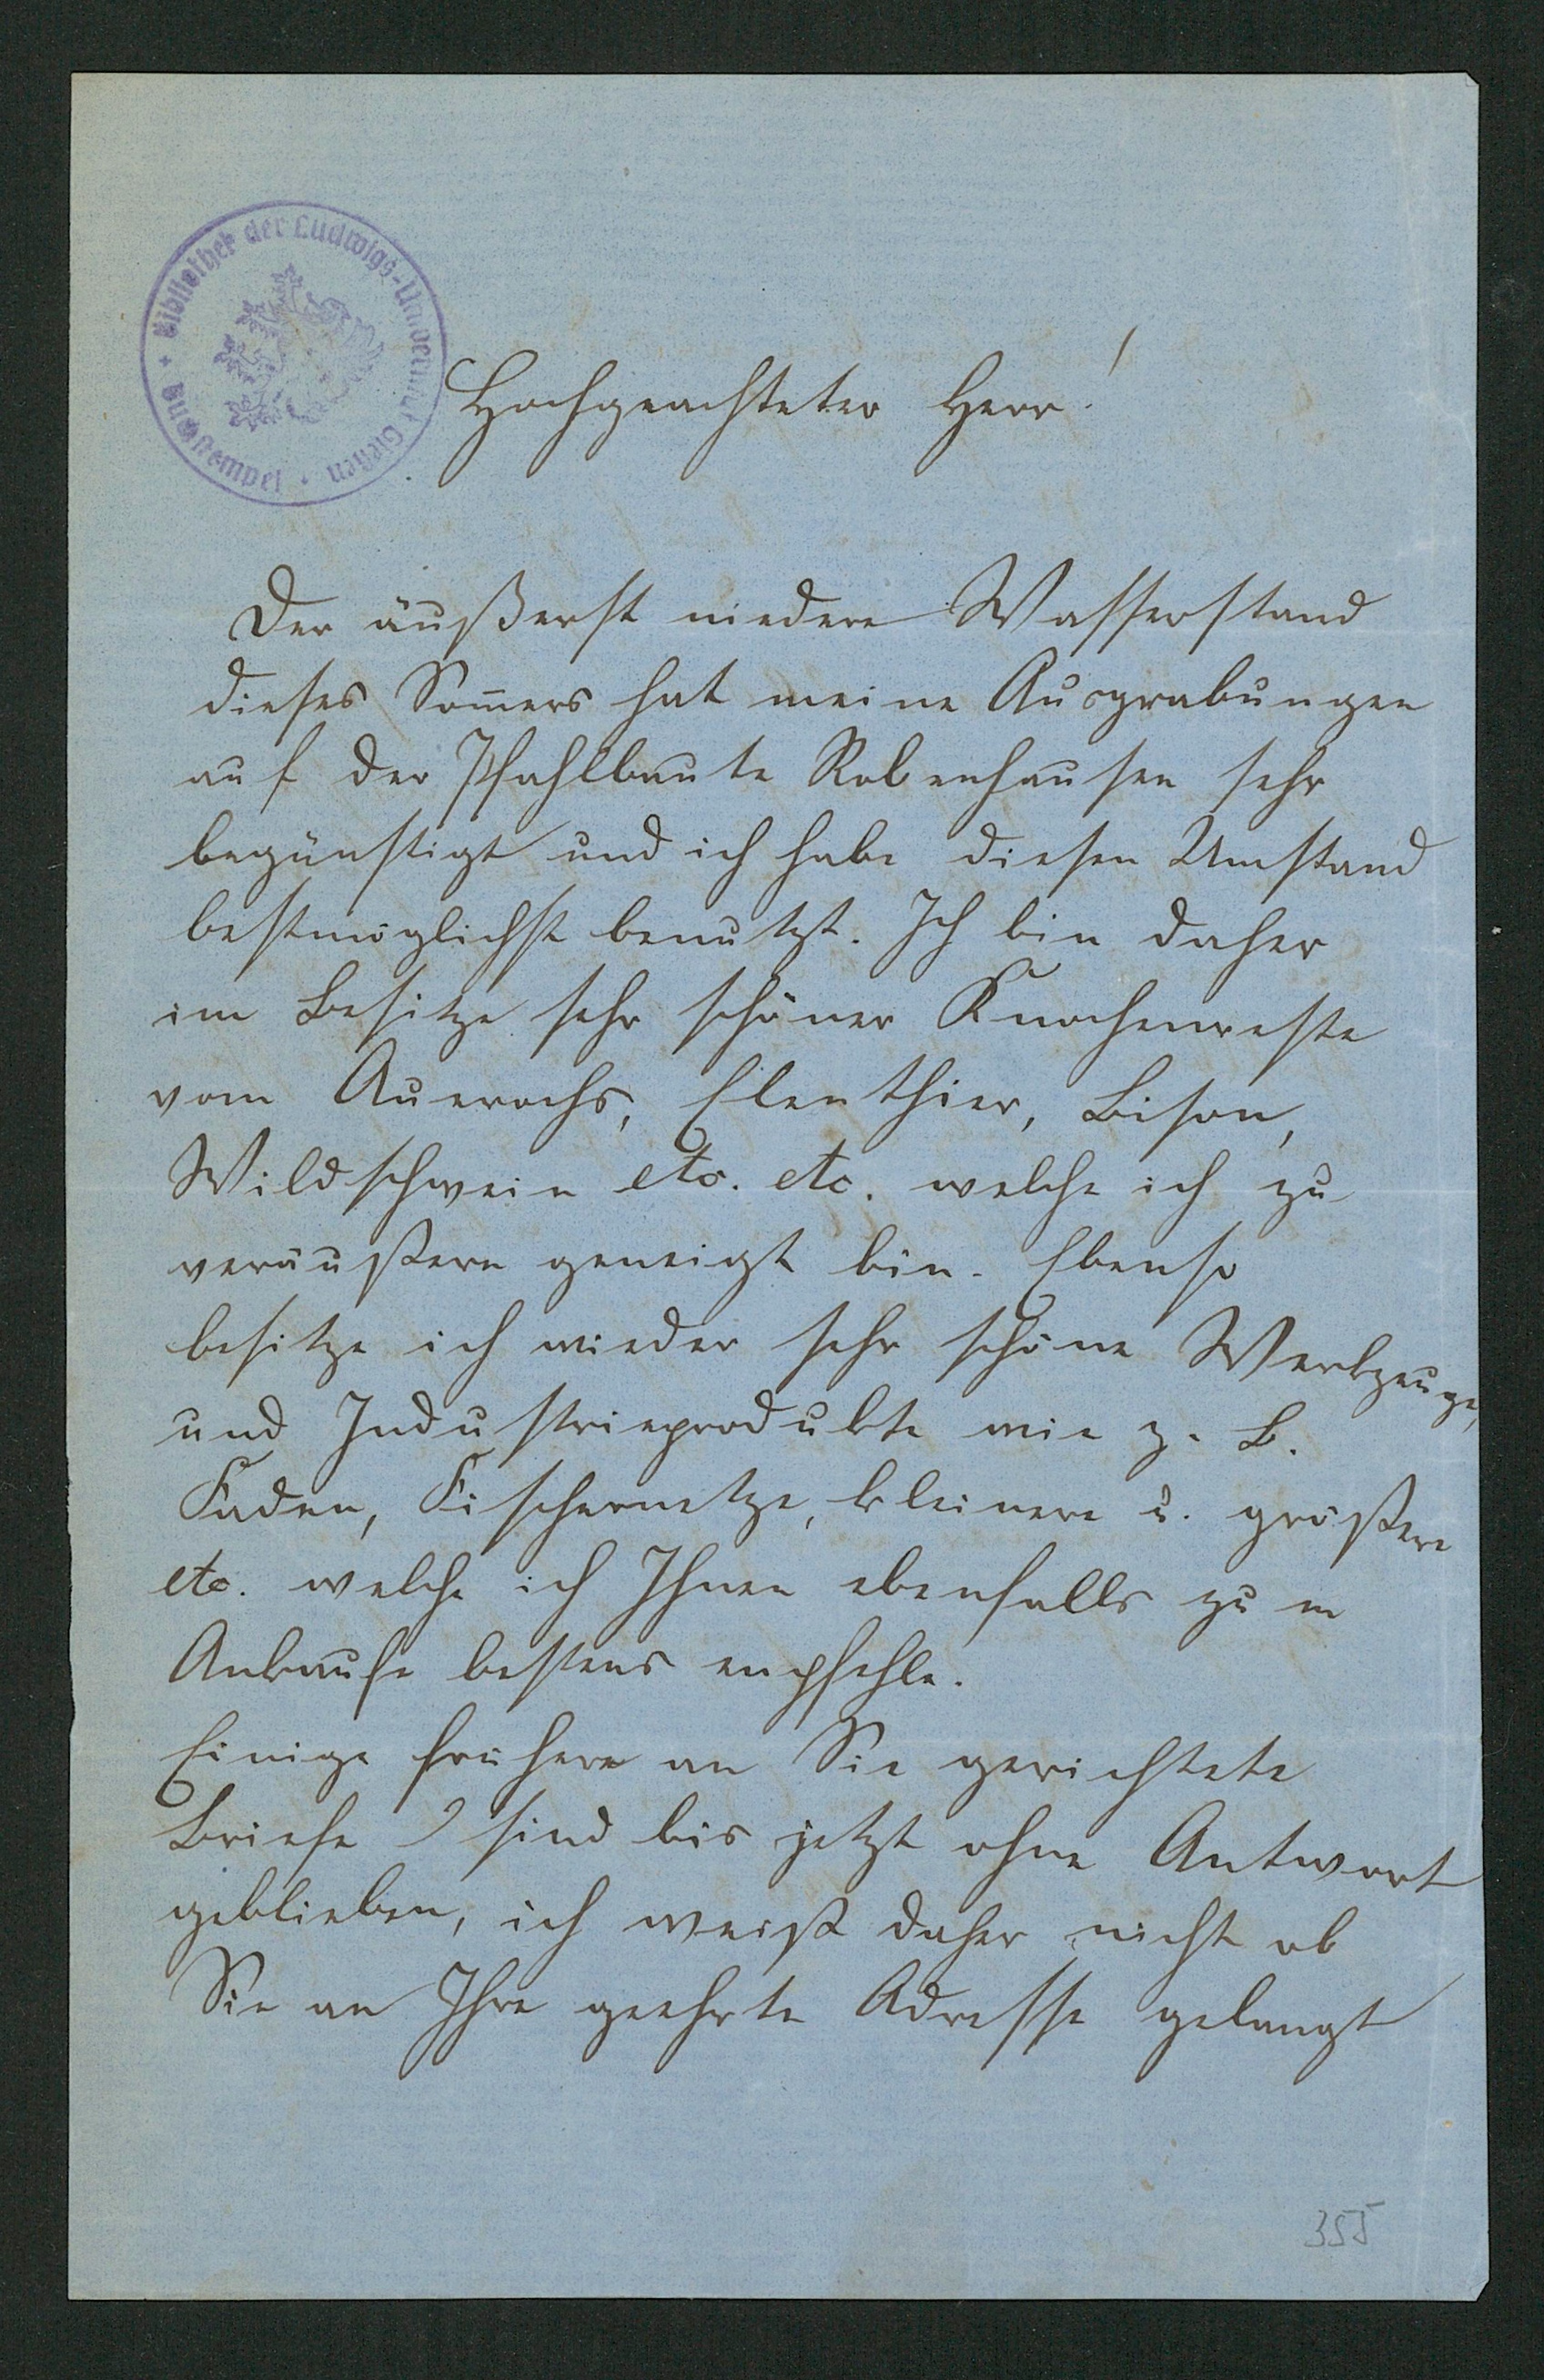 Bibliothek der Ludwigs-Universität Gießen
Tauschstempel
Hochgeachteter Herr!
Der äußerst niedere Wasserstand
dieses Som̄ers hat meine Ausgrabungen
auf der Pfahlbaute Robenhausen sehr
begünstigt und ich habe diesen Umstand
bestmöglichst benutzt. Ich bin daher
im Besitze sehr schöner Knochenreste
vom Auerochs, Elenthier, Bison,
Wildschwein etc. etc. welche ich zu
veräußern geneigt bin. Ebenso
besitze ich wieder sehr schöne Werkzeuge,
und Industrieprodukte wie z. B.
Faden, Fischernetze, kleinere u. größere
etc. welche ich Ihnen ebenfalls zum
Ankaufe bestens empfehle.
Einige frühere an Sie gerichtete
Briefe sind bis jetzt ohne Antwort
geblieben, ich weiß daher nicht ob
Sie an Ihre geehrte Adresse gelangt
355